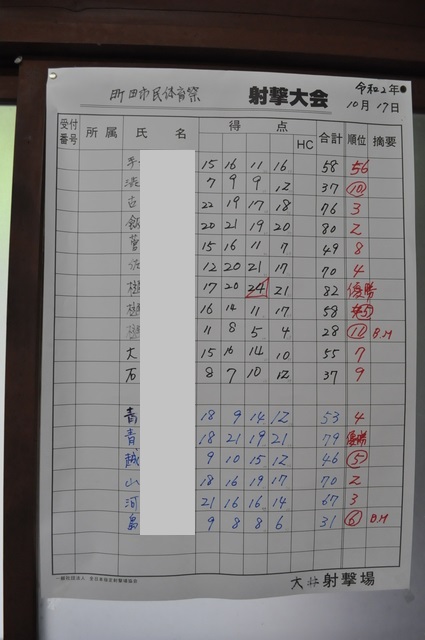 町田市民体育祭 射撃大会 令和2年
10月17日
受付番号 所属 氏名 得点 HC 合計 順位 摘要
手 15 16 11 16 58 6
7 9 9 12 37 10
古 22 19 17 18 76 3
飯 20 21 19 20 80 2
15 16 11 7 49 8
佐 12 20 21 17 70 4
17 20 24 21 82 優勝
16 14 11 17 58 5
11 8 5 4 28 11 B.M
大 15 16 14 10 55 7
石 8 7 10 12 37 9
青 18 9 14 12 53 4
青 18 21 19 21 79 優勝
越 9 10 15 12 46 5
山 18 16 19 17 70 2
河 21 16 16 14 67 3
9 8 8 6 31 6 B.M
大井射撃場